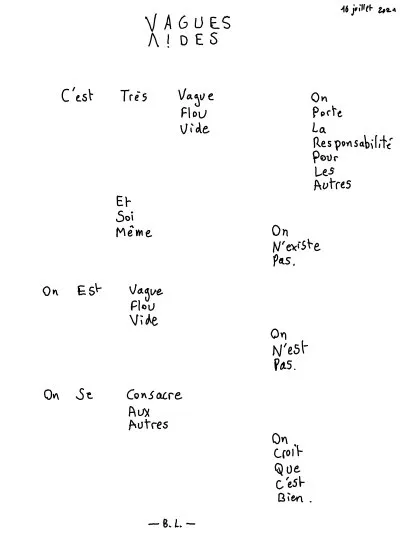 16 juillet 2021
VAGUES
VIDES
C'est Très Vague
Flou
Vide
On
Porte
La
Responsabilité
Pour
Les
Autres
Et
Soi
Même
On
N'existe
Pas.
On Est Vague
Flou
Vide
On
N'est
Pas.
On Se Consacre
Aux
Autres
On
Croit
Que
C'est
Bien.
— B. L. —